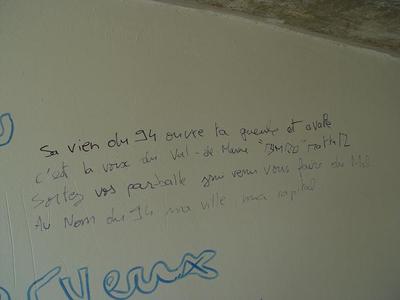 Sa vien du 94 ouvre ta gueule et avale
c'est la voix du Val-de-Marne
Sortez vos par-balle suis venu vous faire du Mal
Au Nom du 94 ma ville, ma capital